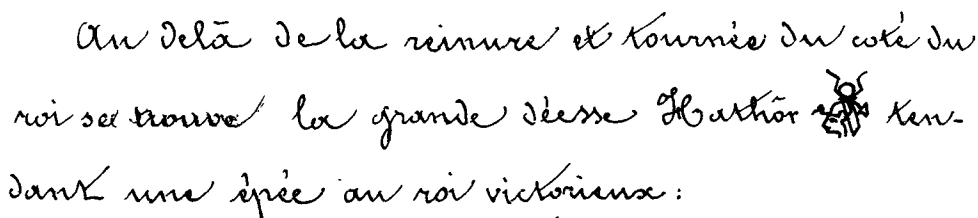 Au delā de la reinure et tournée du coté du
roi se trouve la grande déesse Hathōr ten-
dant une épée au roi victorieux: